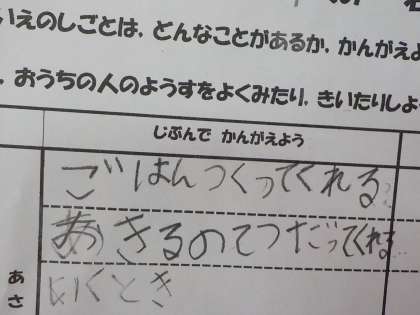 いえのしごとは，どんなことがあるか，かんがえよ
．おうちの人のようすをよくみたり，きいたりしよ
じぶんで かんがえよう
ごはんつくってくれる
おきるのてつだってくれる
あさ
いくとき